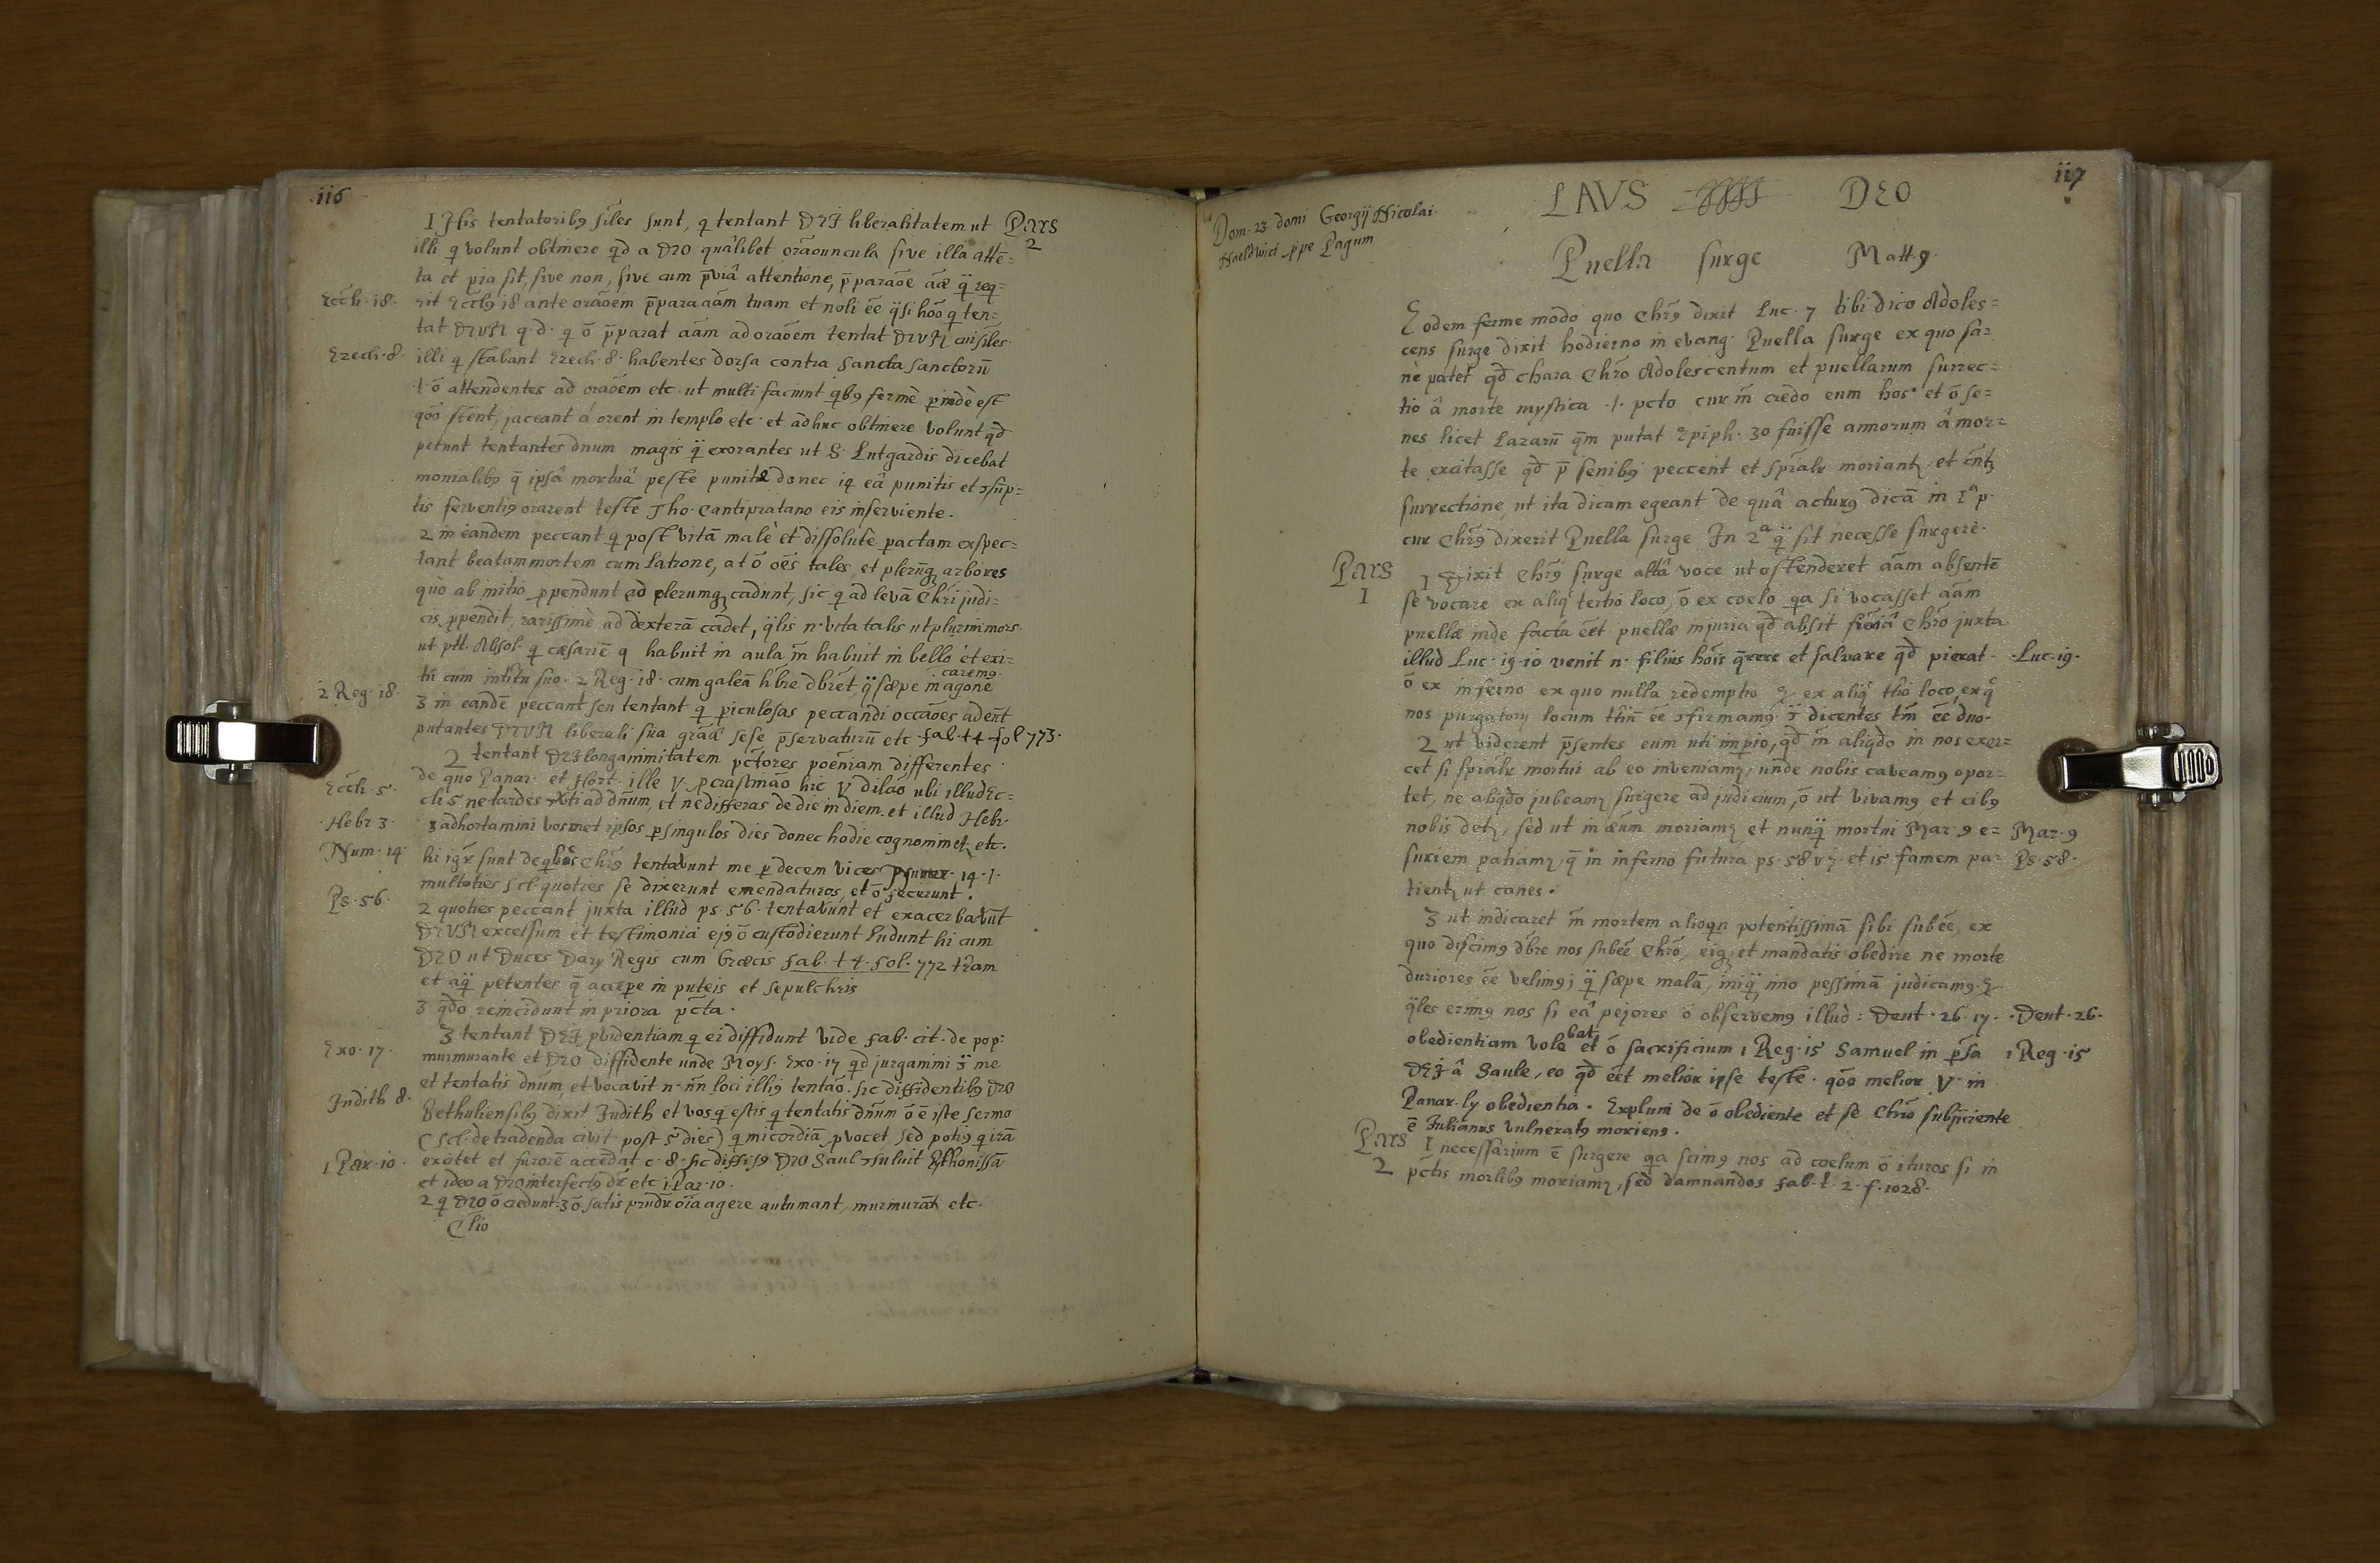 116
1 His tentatoribꝰ sĩles sunt, q tentant DEI liberalitatem ut Pars
illi q volunt obtinere qd̃ a DEO quâlibet orãouncula sive illa attẽ= 2
ta et pia sit, sive non, sive cum p̃viâ attentione, p̃paraõe aã̃e q̈ req=
Eccli·18· rit Eccliꝰ 18 ante oraõem p̃para aãm tuam et noli ẽe q̈si hõo q ten=
tat DEUM q·d· q õ p̃parat aãm ad oraõem tentat DEUM cui sĩles
Ezech·8· illi q stabant Ezech·8· habentes dorsa contra Sancta Sanctorũ
·I· õ attendentes ad oraõem etc· ut multi faciunt qibꝰ fermè perindè est
qõo stent, jaceant á orent in templo etc· et adhuc obtinere volunt qd̃
petunt tentantes dnum magis q̃ exorantes ut S· Lutgardis dicebat
monialibꝰ q̃ ipsâ mortuâ peste punitæ donec iq eâ punitis et ɔsũp=
tis ferventiꝰ orarent teste Tho· Cantipratano eis inserviente·
2 in eandem peccant q post vitã malè et dissolutè pactam exspec=
tant beatam mortem cum Latrone, at õ oẽs tales, et plerũqꝫ arbores
quò ab initio ꝓpendunt ad plerumqꝫ cadunt, sic q ad levã Chr̃i judi=
cis ꝓpendit, rarissimè ad dexterã cadet, q̈lis n· vita talis ut plurim̃ mors
ut ptt· Absol· q cæsariẽ q habuit in aula m̃ habuit in bello et exi=
tũ cum intitu suo· 2 Reg·18· cum galeã hr̃e dbr̃et q̈ sæpe in agone caremꝰ·
2 Reg·18· 3 in eandẽ peccant seu tentant q piculosas peccandi occãoes adeũt
putantes DEUM liberali suã grãâ sese p̃servaturũ etc· fab·t 4 fol 773·
2 tentant DEI longanimitatem pc̃tores poẽniam differentes
de quo Panar· et Hort· ille V· pcrastinaõ hic V· dilaõ ubi illud Ec=
Eccli·5· cli 5 ne tardes ɔv̈ti ad dñum, et ne differas de die in diem· et illud Hebr·
·Hebr·3· 3 adhortamini vosmet ipsos p singulos dies donec hodie cognominetꝛ etc·
Num·14· hi igr̃ sunt de qbꝰ Chr̃ꝰ tentabunt me p decem vices Numer· 14·I·
multoties scl· quoties se dixerunt emendaturos, et õ fecerunt·
Ps·56· 2 quoties peccant juxta illud ps·56· tentabunt et exacerbabũt
DEUM excelsum et testimonia ejꝰ õ custodierunt Ludunt hi cum
DEO ut Duces Darij Regis cum Græcis fab· t 4· fol· 772 tr̃am
et aq̃ petentes q̃ accepe in puteis et sepulchris
3 qd̃o reincidunt in priora pc̃ta·
3 tentant DEI pvidentiam q ei diffidunt vide fab· cit· de pop:
Exo·17· murmurante et DEO diffidente unde Moys· Exo·17 qd̃ jurgamini ɔ̈ me
et tentatis dñum, et vocavit n· nm̃ loci illiꝰ tentaõ· sic diffidentibꝰ DEO
Judith 8· Bethuliensibꝰ dixit Judith et vos q estis q tentatis dñum õ ẽ iste sermo
(scl· de tradenda civit· post 5 dies) q micordiã pvocet sed potiꝰ q irã
1 Par·10· excitet et furorẽ accẽdat c·8· sic diffisꝰ DEO Saul ɔsuluit Pythonissã
et ideo a DEO interfectꝰ dr̃ etc 1 Par·10·
2 q DEO õ credunt· 3 õ satis prudr̃ oĩa agere autumant, murmurãt etc·
Clio
117
Dom·23 domi Georgij Nicolai
Haeldwici ꝓpe Pagum
LAVS DEO
Puella surge Matt·9·
Eodem ferme modo quo Chr̃ꝰ dixit Luc·7 tibi dico Adoles=
cens surge dixit hodierno in evang· Puella surge ex quo sa=
nè patet qd̃ chara Chr̃o Adolescentum et puellarum surrec=
tio â morte mystica ·I· pcto cur m̃ credo eum hos et õ se=
nes licet Lazarũ q̃m putat Epiph· 30 fuisse annorum â mor=
te excitasse qd̃ p̃ senibꝰ peccent et spĩalr moriantꝛ et ɔñtꝫ
surrectione, ut ita dicam egeant de quâ acturꝰ dicã in 1ª p·
cur Chr̃ꝰ dixerit Puella surge In 2ª q̈ sit necesse surgere·
Pars 1 1 Dixit Chr̃ꝰ surge altâ voce ut ostenderet aãm absentẽ
se vocare ex aliq̃ tertio loco, õ ex coelo qa si vocasset aãm
puellæ inde facta eẽt puellæ injuria qd̃ absit fieri â Chr̃o juxta
illud Luc·19·10 venit n· filius hõis q̃rere et salvare qd̃ pierat· ·Luc·19·
õ ex inferno ex quo nulla redemptio & ex aliq̃ tr̃tio loco, ex q̃
nos purgatorij locum tr̃tiũ ẽe ɔfirmamꝰ ɔ̈ dicentes tm̃ ẽe duo·
2 ut viderent p̃sentes eum uti imperio, qd̃ m̃ aliqd̃o in nos exer=
cet si spĩalr mortui ab eo inveniamꝛ, unde nobis caveamꝰ opor=
tet, ne aliqd̃o jubeamꝛ surgere ad judicium, õ ut vivamꝰ et cibꝰ
nobis detꝛ, sed ut in æũm moriamꝛ et nunq̃ mortui Mar·9 e= Mar·9
suriem patiamꝛ q̃ in inferno futura ps·58 v 7· et 15 famem pa= Ps·58·
tientꝛ ut canes·
3 ut indicaret m̃ mortem alioqn potentissimã sibi subẽe, ex
quo discimꝰ dbr̃e nos subẽe Chr̃o, eiqꝫ et mandatis obedire ne morte
duriores ẽe velimꝰ; q̃ sæpe malã, iniq̃, imo pessimã judicamꝰ &
q̈les erimꝰ nos si eâ pejores õ observemꝰ illud: Deut·26·17· ·Deut·26·
obedientiam volebat et õ sacrificium 1 Reg·15 Samuel in p̃sa 1 Reg·15
DEI â Saule, eo qd̃ eẽt melior ipse teste· qõo melior V· in
Panar· ly obedientia· Explum de õ obediente et se Chr̃o subjiciente
ẽ Julianus vulneratꝰ moriens·
Pars 2 1 necessarium ẽ surgere qa scimꝰ nos ad coelum õ ituros si in
pctis mortlibꝰ moriamꝛ, sed damnandos fab·t·2·f·1028·